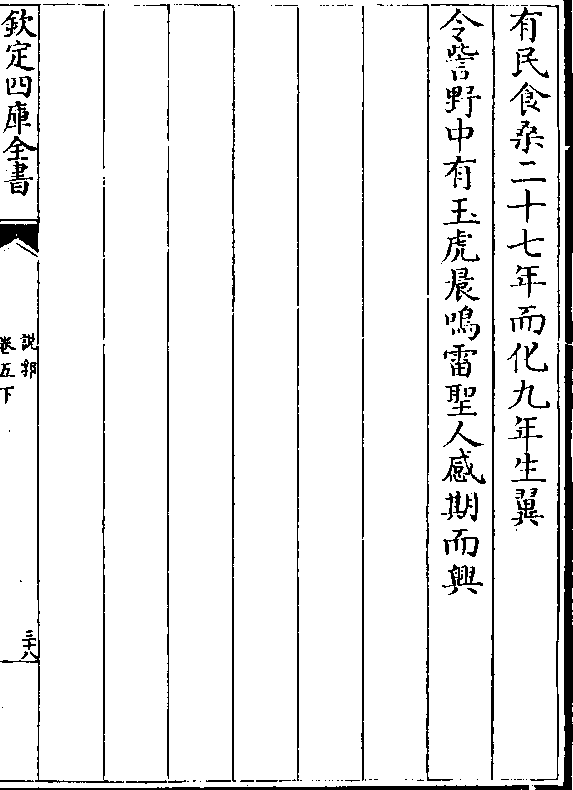 有民食桑二十七年而化九年生翼
令訾野中有玉虎晨鳴雷聖人感期而興
欽定四庫全書
說郛
卷五下
三十八